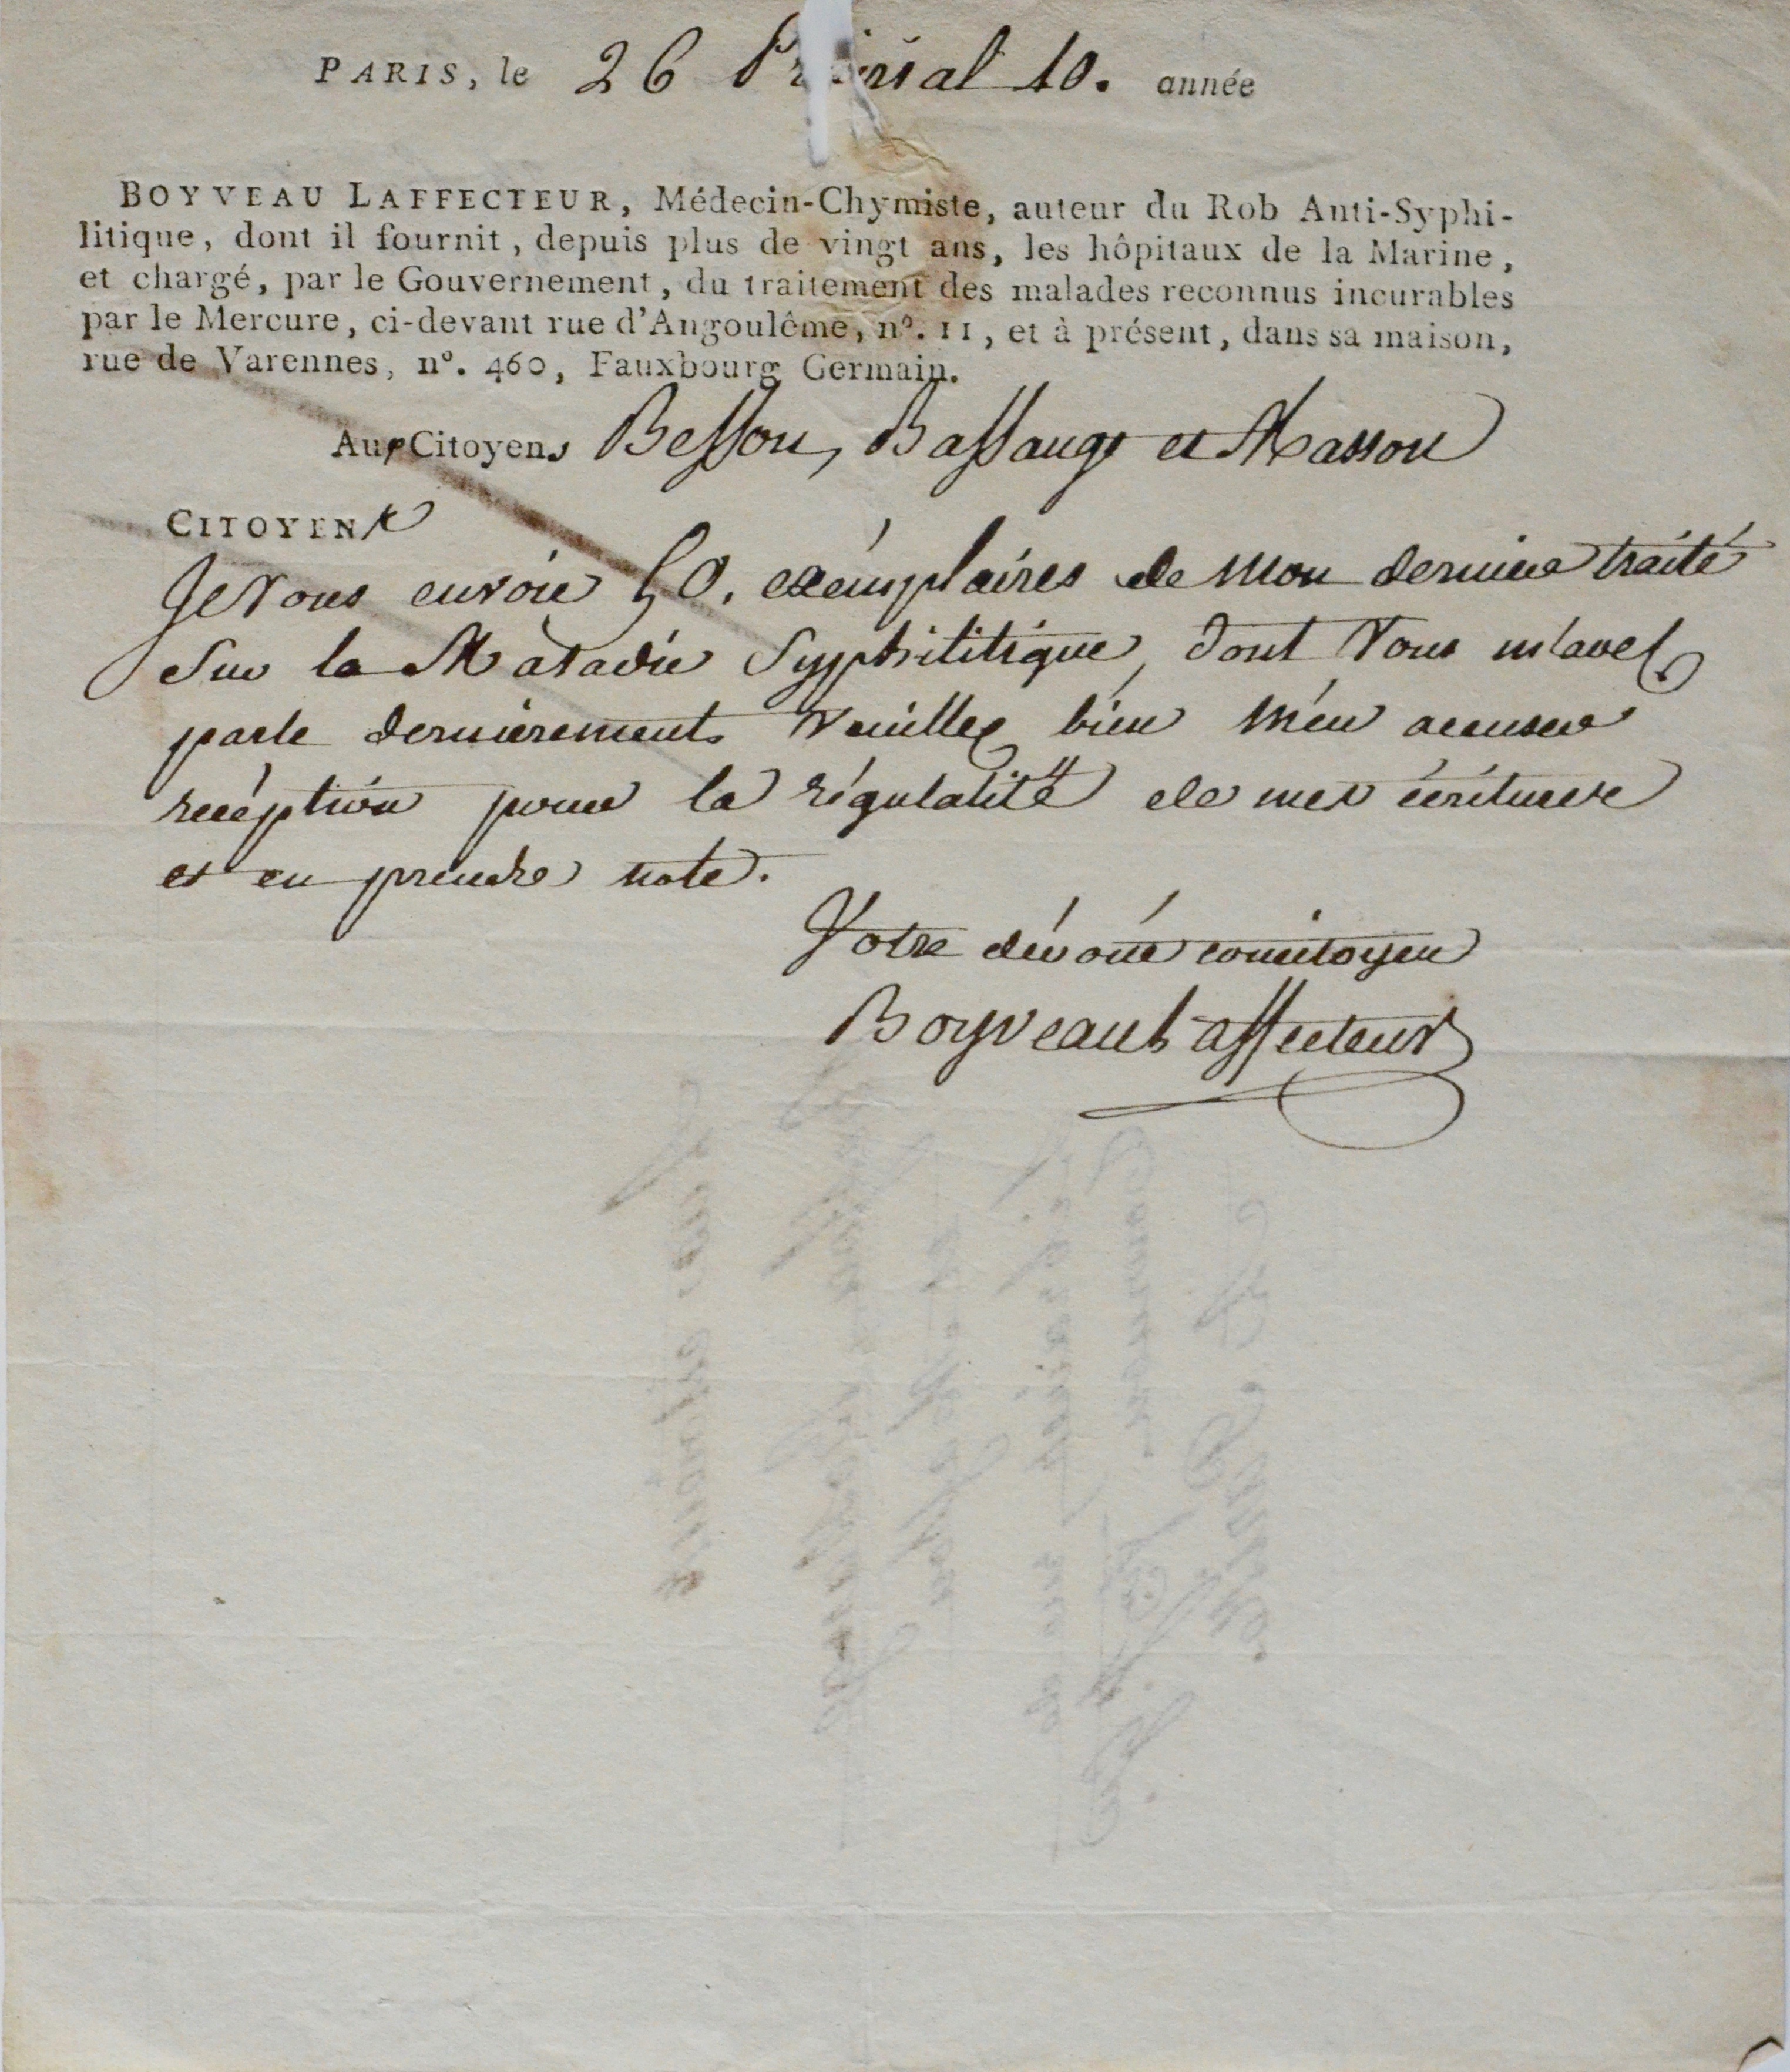 PARIS, le 26 Prairial 10. année
BOYVEAU LAFFECTEUR, Médecin-Chymiste, auteur du Rob Anti-Syphi-
litique, dont il fournit, depuis plus de vingt ans, les hôpitaux de la Marine,
et chargé, par le Gouvernement, du traitement des malades reconnus incurables
par le Mercure, ci-devant rue d'Angoulême, n°. 11, et à présent, dans sa maison,
rue de Varennes, n°. 460, Fauxbourg Germain.
Aux Citoyens Besson, Bassange et Masson
CITOYENS
Je Vous envoie 50. exémplaires de mon dernier traité
Sur la Maladie Syphilitique, dont Vous m'avez
parlé dernièrement. Veuillez bien m'én accuser
recéption pour la régulalité de mes écritures
et en prendre note.
Votre dévoué concitoyen
Boyveau Laffecteur